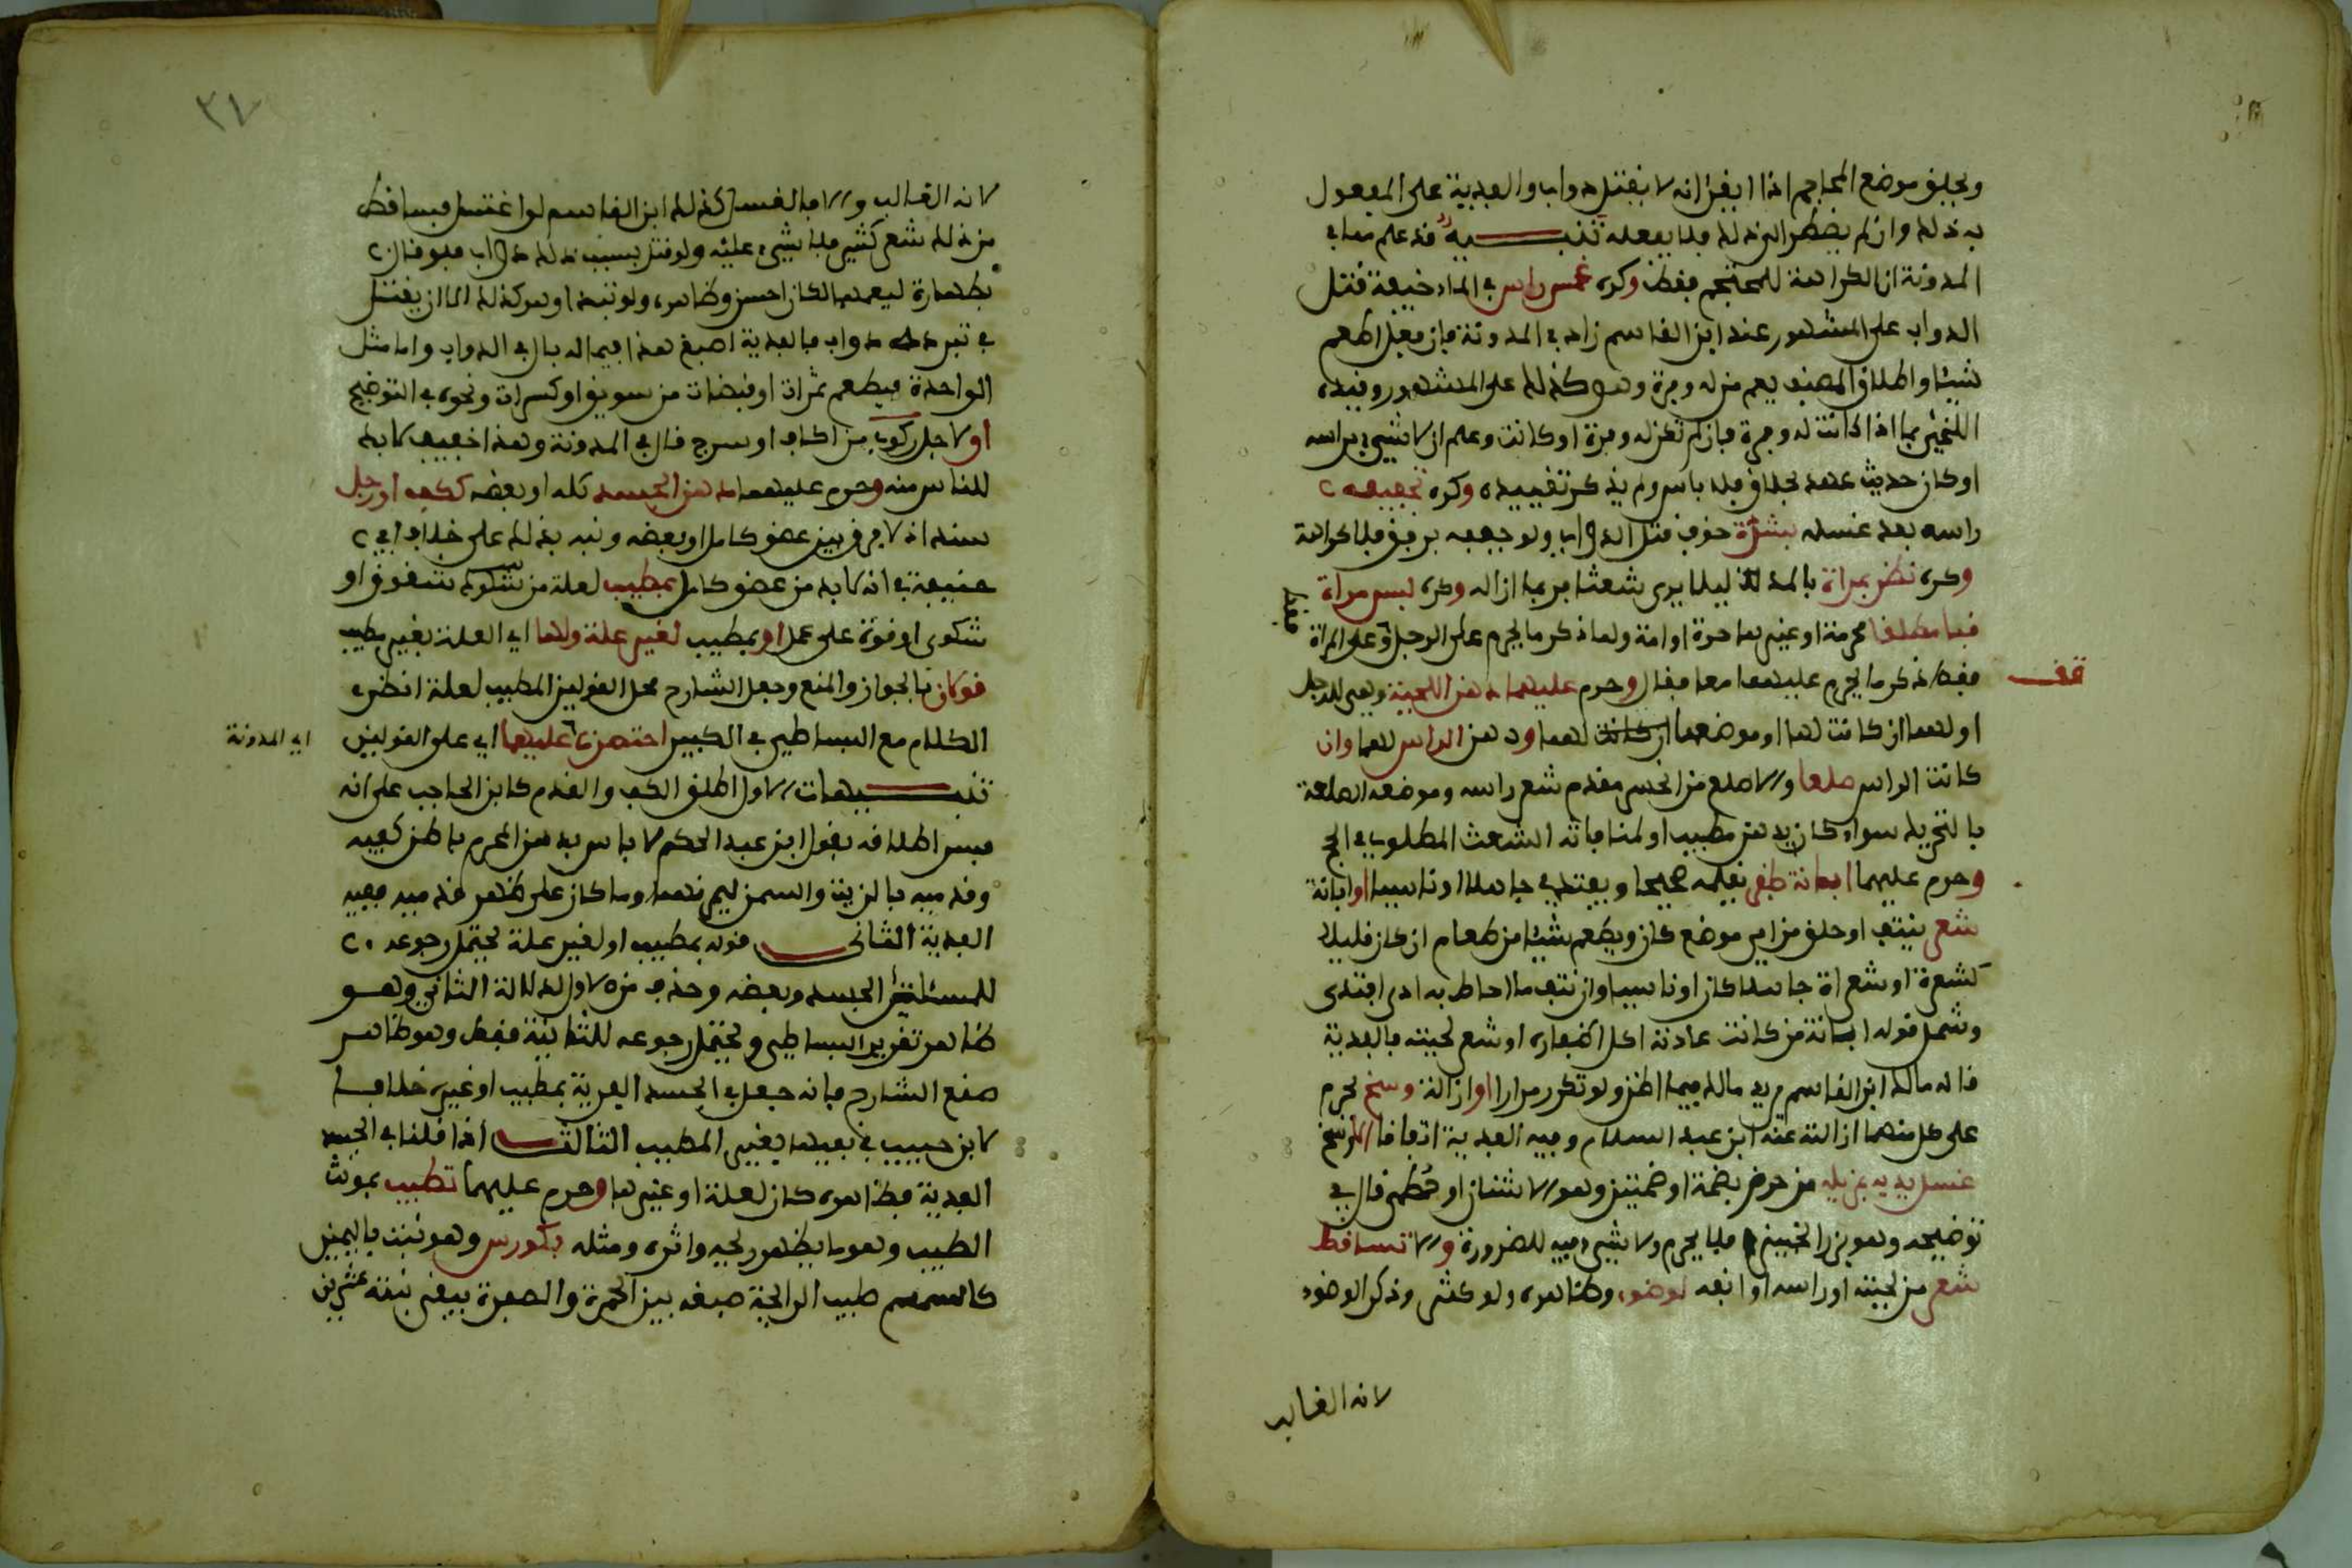 ويحلق موضع المحاجم اذا ايقن انه لا يقتل دواب والفدية على المفعول
به ذلك وان لم يضطر الى ذلك فلا يفعله تنبيه قد علم مما في
المدونة ان الكراهة للمحتجم فقط وكره غمس راس في الماء خيفة قتل
الدواب على المشهور عند ابن القاسم زاد في المدونة فان فعل اطعم
شيئا واطلاق المصنف يعم من له وفرة وهو كذلك على المشهور وقيده
اللخمي بما اذا كانت له وفرة فان لم تكن له وفرة او كانت وعلم ان لا شيء براسه
او كان حديث عهد بحلاق فلا باس ولم يذكر تقييده وكره تجفيفه
راسه بعد غسله بشدة خوف قتل الدواب ولو جففه برفق فلا كراهة
وكره نظر بمراة بالمد ليلا يرى شعثا فربما ازاله وكره لبس مراة
قبا مطلقا محرمة او غيرها حرة او امة ولما ذكر ما يحرم على الرجل وعلى المراة
فقط ذكر ما يحرم عليهما معا فقال وحرم عليهما دهن اللحية وهي للرجل
قف
او لهما ان كانت لها او موضعها ان كانت لهما ودهن الراس لهما وان
كانت الراس صلعا والاصلع من انحسر مقدم شعر راسه وموضعه الصلعة
بالتحريك سواء كان يدهن مطيب او لمنافاته الشعث المطلوب في الحج
وحرم عليهما ابانة ظفر بقلمه صحيحا ويفتدي جاهلا او ناسيا او ابانة
شعر بنتف او حلق من اي موضع كان ويطعم شيئا من طعام ان كان قليلا
كشعرة او شعرات جاهلا كان او ناسيا وان نتف ما اماط به اذى افتدى
وشمل قوله ابانة من كانت عادته اكل اظفاره او شعر لحيته فالفدية
قاله مالك ابن القاسم يريد مالك فيما اظن ولو تكرر مرارا او ازالة وسخ يحرم
على كل منهما ازالته عنه ابن عبد السلام وفيه الفدية اتفاقا الا وسخ
غسل يديه بمزيله من حرض بضمة او ضمتين وهو الاشنان او خطمي قال في
توضيحه وهو بزر الخبيز فلا يحرم ولا شيء فيه للضرورة والا تساقط
شعر من لحيته او راسه او انفه لوضوء وظاهره ولو كثر وذكر الوضوء
لانه الغالب
٣٧
لانه الغالب والا فالغسل كذلك ابن القاسم لو اغتسل فتساقط
من ذلك شعر كثير فلا شيء عليه ولو قتل بسبب ذلك دواب
في تبرد دواب فالفدية اصبغ هذا فيما له بال في الدواب واما مثل
الواحدة فيطعم تمرات او قبضات من سويق او كسرات ونحوه في التوضيح
او لاجل ركوب من اكاف او سرج قال في المدونة وهذا خفيف لا بد
للناس منه وحرم عليهما دهن الجسد كله او بعضه ككف او رجل
سند اذ لا فرق بين عضو كامل او بعضه ونبه بذلك على خلاف ابي
حنيفة في انه لا بد من عضو كامل بمطيب لعلة من شقوق او
شكوى او قوة على عمل او بمطيب لغير علة ولها اي العلة بغير مطيب
قولان بالجواز والمنع وجعل الشارح محل القولين المطيب لعلة انظره
الكلام مع البساطي في الكبير اختصرت عليهما اي على القولين
اي المدونة
تنبيهات الاول اطلق الكف والقدم كابن الحاجب على انه
فسر اطلاقه بقول ابن عبد الحكم لا باس بدهن المحرم باطن كفيه
وقدميه بالزيت والسمن وما كان على ظهر قدميه ففيه
الفدية الثاني قوله بمطيب او لغير علة يحتمل رجوعه
للمسئلتين الجسد وبعضه وحذف من الاول لدلالة الثاني وهو
ظاهر تقرير البساطي ويحتمل رجوعه للثانية فقط وهو ظاهر
صنع الشارح فانه جعل في الجسد الفدية بمطيب او غيره خلافا
لابن حبيب في نفيها بغير المطيب الثالث اذا قلنا في الجسد
الفدية فظاهره كان لعلة او غيرها وحرم عليهما تطيب بمونث
الطيب وهو ما يظهر ريحه واثره ومثله بكورس وهو نبت باليمن
كالسمسم طيب الرائحة صبغه بين الحمرة والصفرة يبقى نبته عشرين